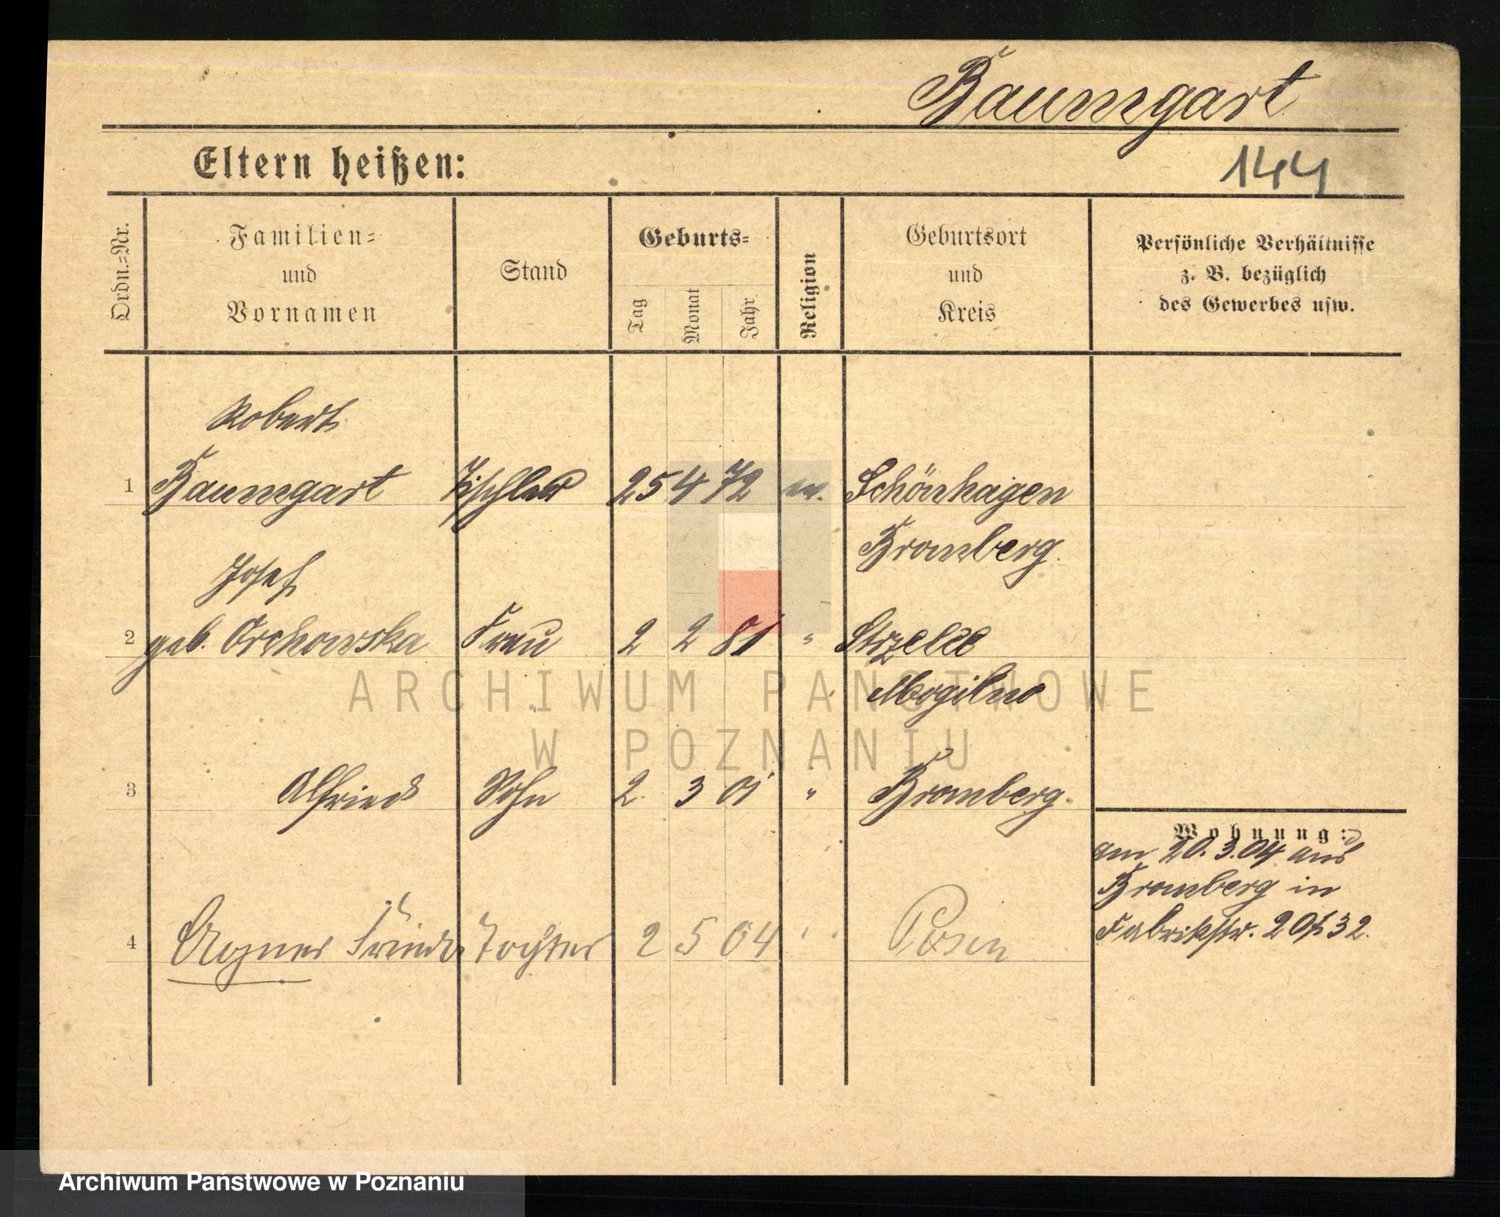 Baumgart
Eltern heißen:
144
Ordn.=Nr.
Familien=
und
Vornamen
Stand
Geburts=
Tag
Monat
Jahr
Religion
Geburtsort
und
Kreis
Persönliche Verhältnisse
z. B. bezüglich
des Gewerbes usw.
Robert
1 Baumgart Tischler 25 4 72 ev. Schönhagen
Bromberg
Josef
2 geb. Orchowska Frau 2 2 81 " Strzelce
Mogilno
3 Alfried Sohn 2. 3 01 " Bromberg.
Wohnung:
am 20.3.04 aus
Bromberg in
Fabrikstr. 20/32.
4 Frieda Tochter 2 5 04 Posen
ARCHIWUM PAŃSTWOWE
W POZNANIU
Archiwum Państwowe w Poznaniu